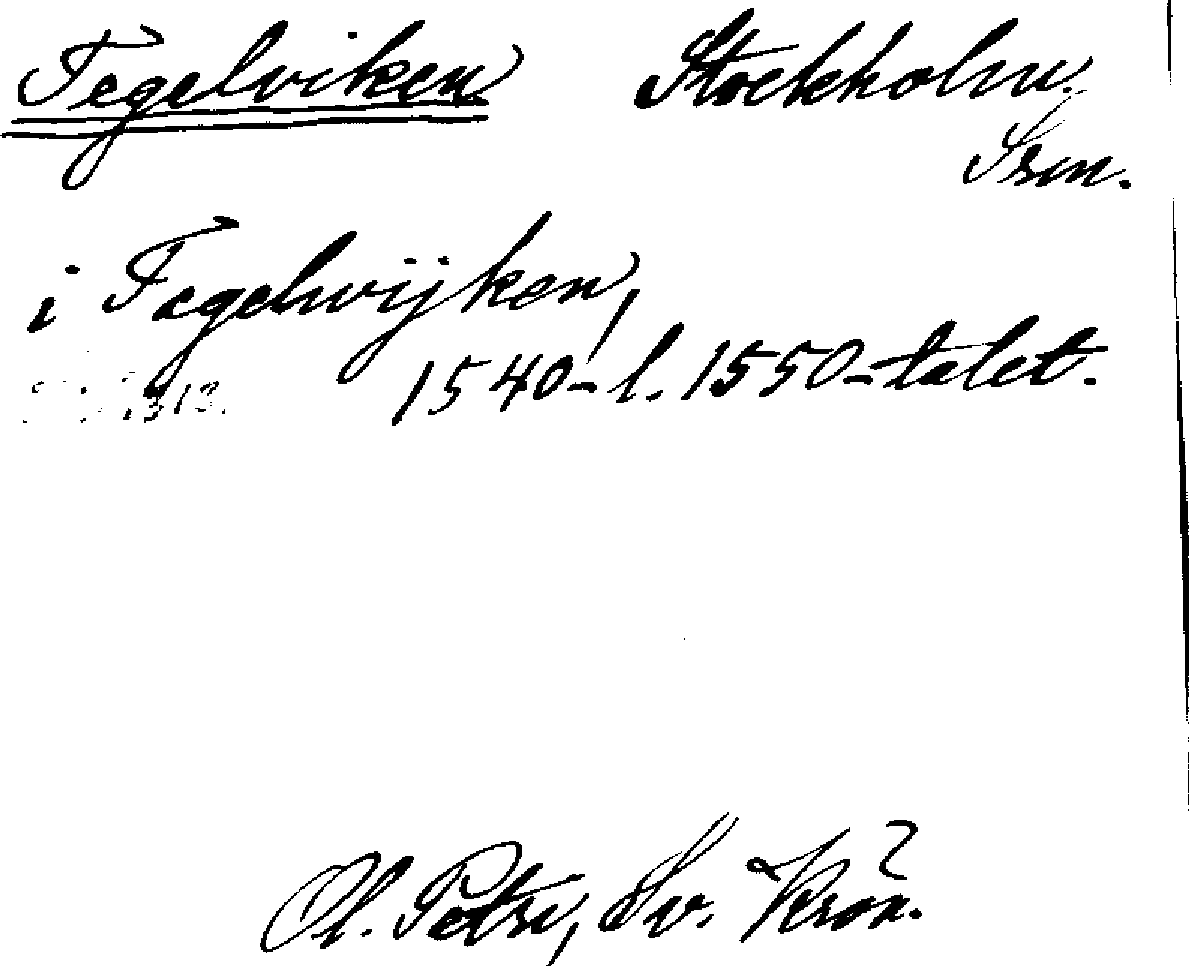 Tegelviken Stockholm.
Srm.
i Tegelwijken,
1540- l. 1550-talet.
Ol. Petri, Sv. Krön.